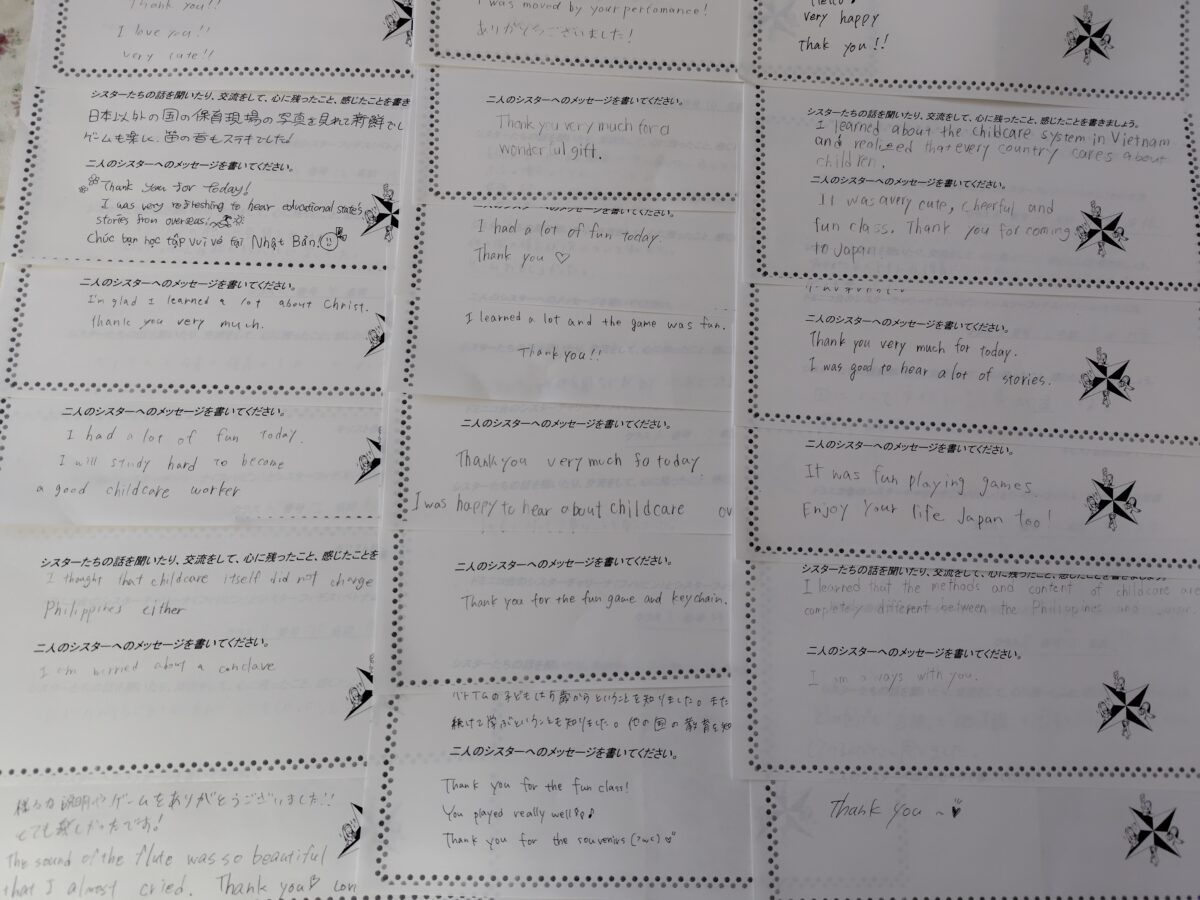 Thank you!!
I love you!!
very cute!!
シスターたちの話を聞いたり、交流をして、心に残ったこと、感じたことを書き
日本以外の国の保育現場の写真を見れて新鮮でし
ゲームも楽しく、笛の音もステキでした!
二人のシスターへのメッセージを書いてください。
Thank you for today!
I was very refreshing to hear educational state's
stories from overseas.
Chúc bạn học tập vui vẻ tại Nhật Bản!
二人のシスターへのメッセージを書いてください。
I'm glad I learned a lot about Christ.
thank you very much.
二人のシスターへのメッセージを書いてください。
I had a lot of fun today.
I will study hard to become
a good childcare worker
シスターたちの話を聞いたり、交流をして、心に残ったこと、感じたことを
I thought that childcare itself did not change
Philippines either
二人のシスターへのメッセージを書いてください。
I am worried about a conclave
様々な説明やゲームをありがとうございました!!
とても楽しかったです!
The sound of the flute was so beautiful
that I almost cried. Thank you♡ Lov
I was moved by your perfomance!
ありがとうございました!
二人のシスターへのメッセージを書いてください。
Thank you very much for a
wonderful gift.
I had a lot of fun today.
Thank you ♡
I learned a lot and the game was fun.
Thank you!!
二人のシスターへのメッセージを書いてください。
Thank you very much fo today
I was happy to hear about childcare ov
二人のシスターへのメッセージを書いてください。
Thank you for the fun game and keychain.
ベトナムの子どもは
続けて学ぶということも知りました。他の国の教育を知
二人のシスターへのメッセージを書いてください。
Thank you for the fun class!
You played really well!♪
Thank you for the souvenirs
Hello♪
very happy
Thak you!!
シスターたちの話を聞いたり、交流をして、心に残ったこと、感じたことを書きましょう。
I learned about the childcare system in Vietnam
and realized that every country cares about
children.
二人のシスターへのメッセージを書いてください。
It was avery cute, cheerful and
fun class. Thank you for coming
to Japan
二人のシスターへのメッセージを書いてください。
Thank you very much for today.
I was good to hear a lot of stories.
二人のシスターへのメッセージを書いてください。
It was fun playing games.
Enjoy your life Japan too!
シスターたちの話を聞いたり、交流をして、心に残ったこと、感じたことを書きましょう。
I learned that the methods and content of childcare are
completely different between the Philippines and
二人のシスターへのメッセージを書いてください。
I am always with you.
Thank you ~♥